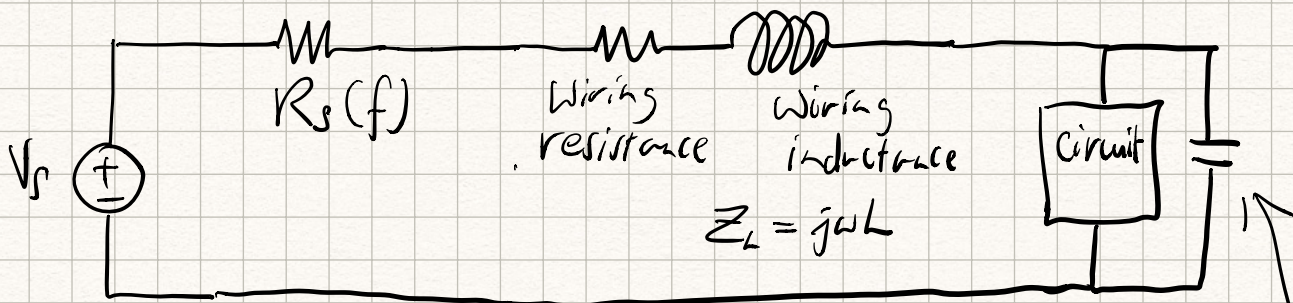 R_s(f)
Wiring
resistance
Wiring
inductance
Z_L = jωL
V_s
+
−
Circuit